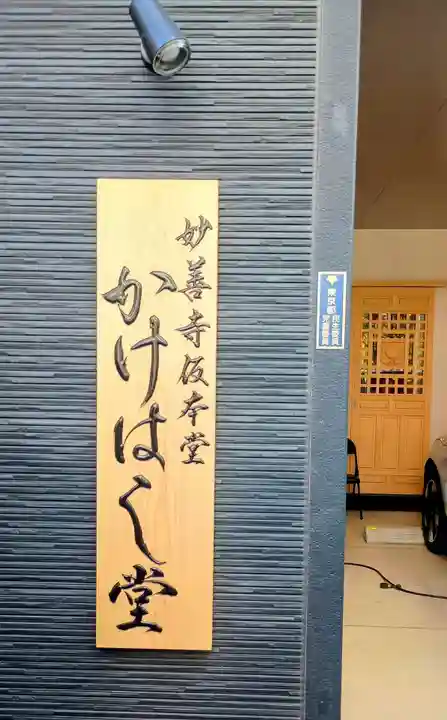 妙善寺仮本堂
かけはし堂
東京都
民生委員
児童委員